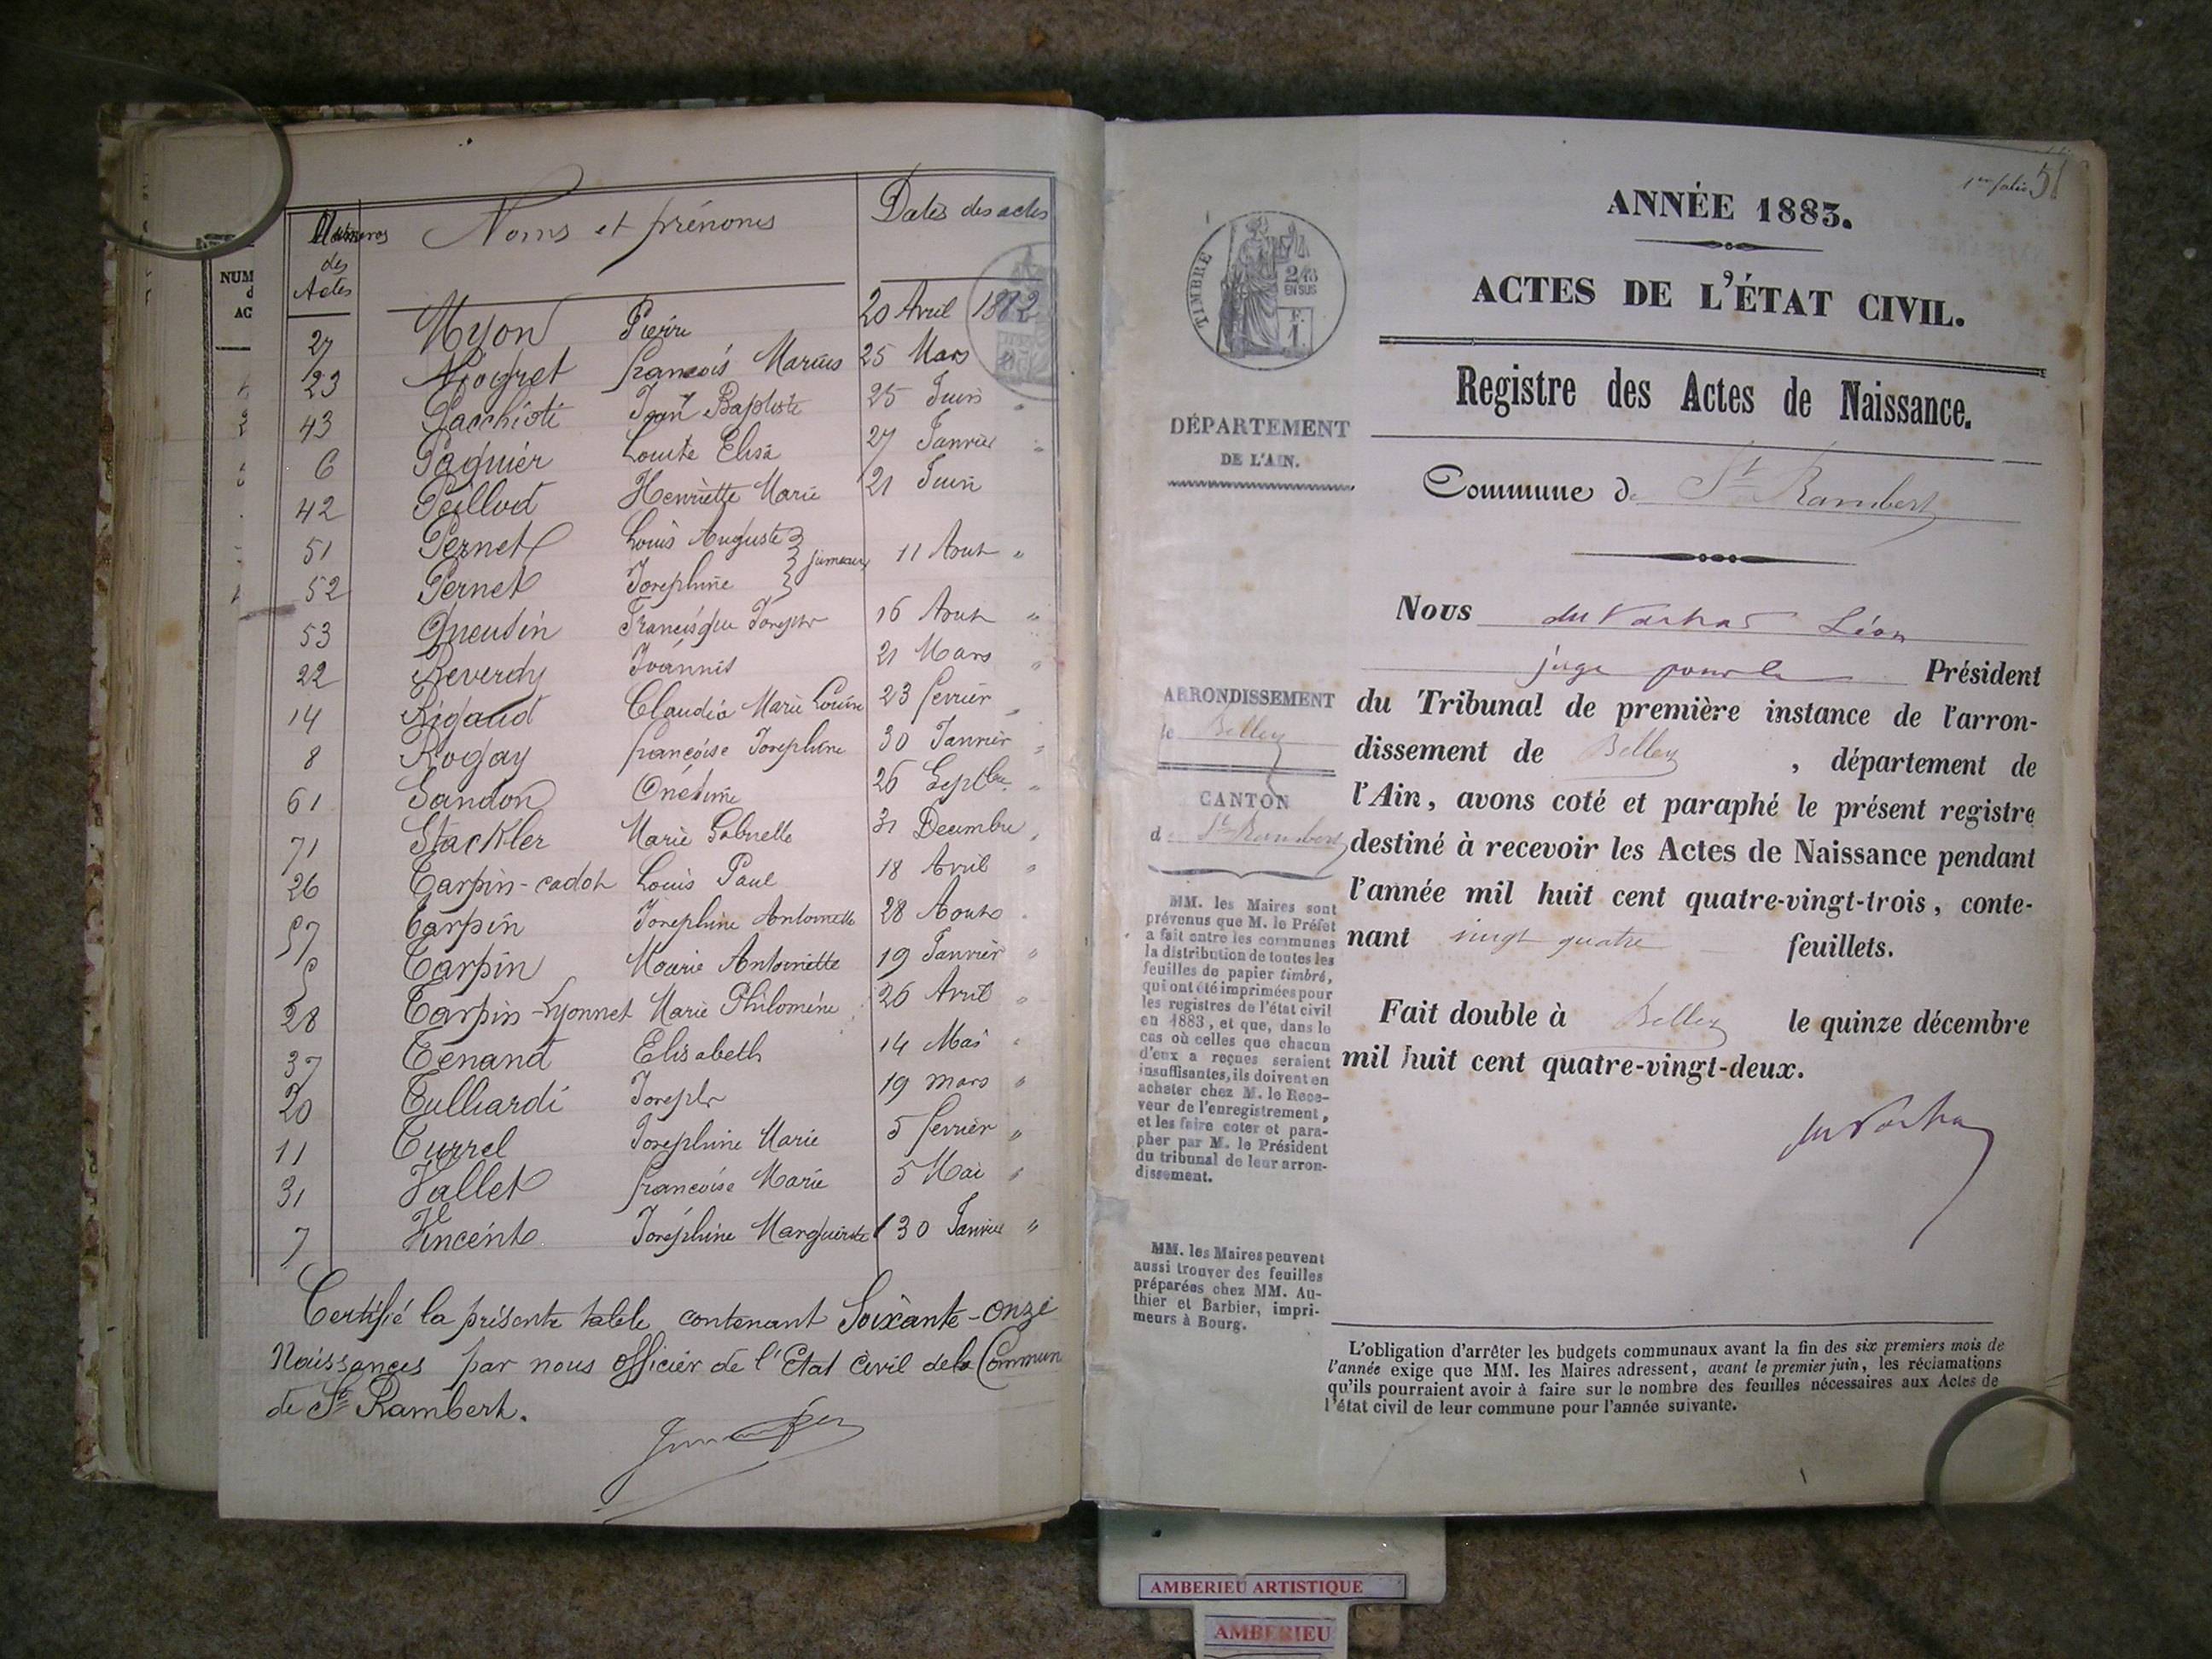 NUM
d
AC
Numeros des Actes Noms et prénoms Dates des actes
27 Myon Pierre 20 Avril 1882
23 Niogret François Marius 25 Mars
43 Pacchioti Jean Baptiste 25 Juin "
6 Paquier Louise Elisa 27 Janvier "
42 Peillod Henriette Marie 21 Juin
51 Pernet Louis Auguste
jumeaux 11 Aout "
52 Pernet Josephine
53 Queudin Francisque Joseph 16 Aout "
22 Reverdy Joannis 21 Mars "
14 Rigaud Claudia Marie Louise 23 fevrier "
8 Rogay françoise Josephine 30 Janvier "
61 Sandon Onésime 26 Septbre "
71 Stackler Marie Gabrielle 31 Decembre "
26 Tarpin-cadot Louis Paul 18 Avril "
57 Tarpin Josephine Antoinette 28 Aout "
5 Tarpin Marie Antoinette 19 Janvier "
28 Tarpin-Lyonnet Marie Philomène 26 Avril "
37 Tenand Elisabeth 14 Mai "
20 Tulliardi Joseph 19 mars "
11 Turrel Josephine Marie 5 fevrier "
31 Vallet françoise Marie 5 Mai "
7 Vincent Joséphine Marguerite 30 Janvier "
Certifié la présente table contenant Soixante-onze
Naissances par nous officier de l'Etat Civil de la Commun
de St Rambert.
51
ANNÉE 1883.
ACTES DE L'ÉTAT CIVIL.
Registre des Actes de Naissance.
Commune de St Rambert
TIMBRE
2/10
EN SUS
F.
1.
DÉPARTEMENT
DE L'AIN.
ARRONDISSEMENT
de Belley
CANTON
de St Rambert
MM. les Maires sont
prévenus que M. le Préfet
a fait entre les communes
la distribution de toutes les
feuilles de papier timbré,
qui ont été imprimées pour
les registres de l'état civil
en 1883, et que, dans le
cas où celles que chacun
d'eux a reçues seraient
insuffisantes, ils doivent en
acheter chez M. le Rece-
veur de l'enregistrement,
et les faire coter et para-
pher par M. le Président
du tribunal de leur arron-
dissement.
MM. les Maires peuvent
aussi trouver des feuilles
préparées chez MM. Au-
thier et Barbier, impri-
meurs à Bourg.
Nous Léon
juge pour le Président
du Tribunal de première instance de l'arron-
dissement de Belley, département de
l'Ain, avons coté et paraphé le présent registre
destiné à recevoir les Actes de Naissance pendant
l'année mil huit cent quatre-vingt-trois, conte-
nant vingt quatre feuillets.
Fait double à Belley le quinze décembre
mil huit cent quatre-vingt-deux.
L'obligation d'arrêter les budgets communaux avant la fin des six premiers mois de
l'année exige que MM. les Maires adressent, avant le premier juin, les réclamations
qu'ils pourraient avoir à faire sur le nombre des feuilles nécessaires aux Actes de
l'état civil de leur commune pour l'année suivante.
AMBERIEU ARTISTIQUE
AMBERIEU